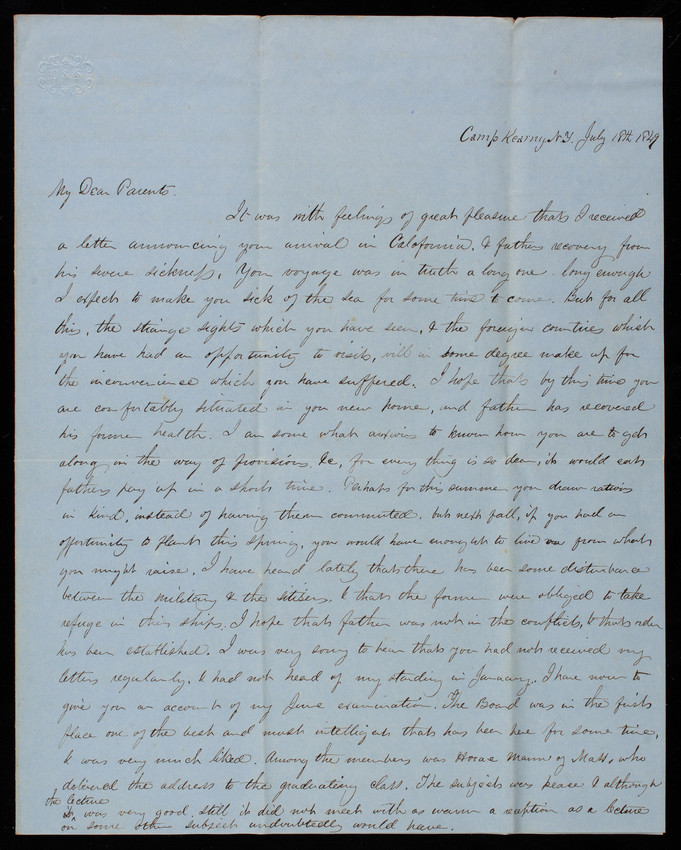 Camp Kearny N.Y. July 18th 1849
My Dear Parents.
It was with feelings of great pleasure that I received
a letter announcing your arrival in Calafornia, & fathers recovery from
his severe sickness. Your voyage was in truth a long one. long enough
I expect to make you sick of the sea for some time to come. But for all
this, the strange sights which you have seen, & the foreign countries which
you have had an opportunity to visit, will in some degree make up for
the inconvenience which you have suffered. I hope that by this time you
are comfortably situated in your new home, and father has recovered
his former health. I am some what anxious to know how you are to get
along in the way of provisions &c, for every thing is so dear, it would eat
fathers pay up in a short time. Perhaps for this summer you draw rations
in kind, instead of having them commuted. but next fall, if you had an
opportunity to plant this spring, you would have enough to live on from what
you might raise. I have heard lately that there has been some disturbance
between the military & the sitisers, & that the former were obliged to take
refuge in their ships. I hope that father was not in the conflict, & that order
has been established. I was very sorry to hear that you had not received my
letters regularly, & had not head of my standing in January. I have now to
give you an account of my June examination. The Board was in the first
place one of the best and most intelligent that has been here for some time,
& was very much liked. Among the members was Horace Mann of Mass, who
delivered the address to the graduating class. The subject was Peace & although
the lecture
was very good. still it did not meet with as warm a reception as a lecture
on some other subject undoubtedly would have.